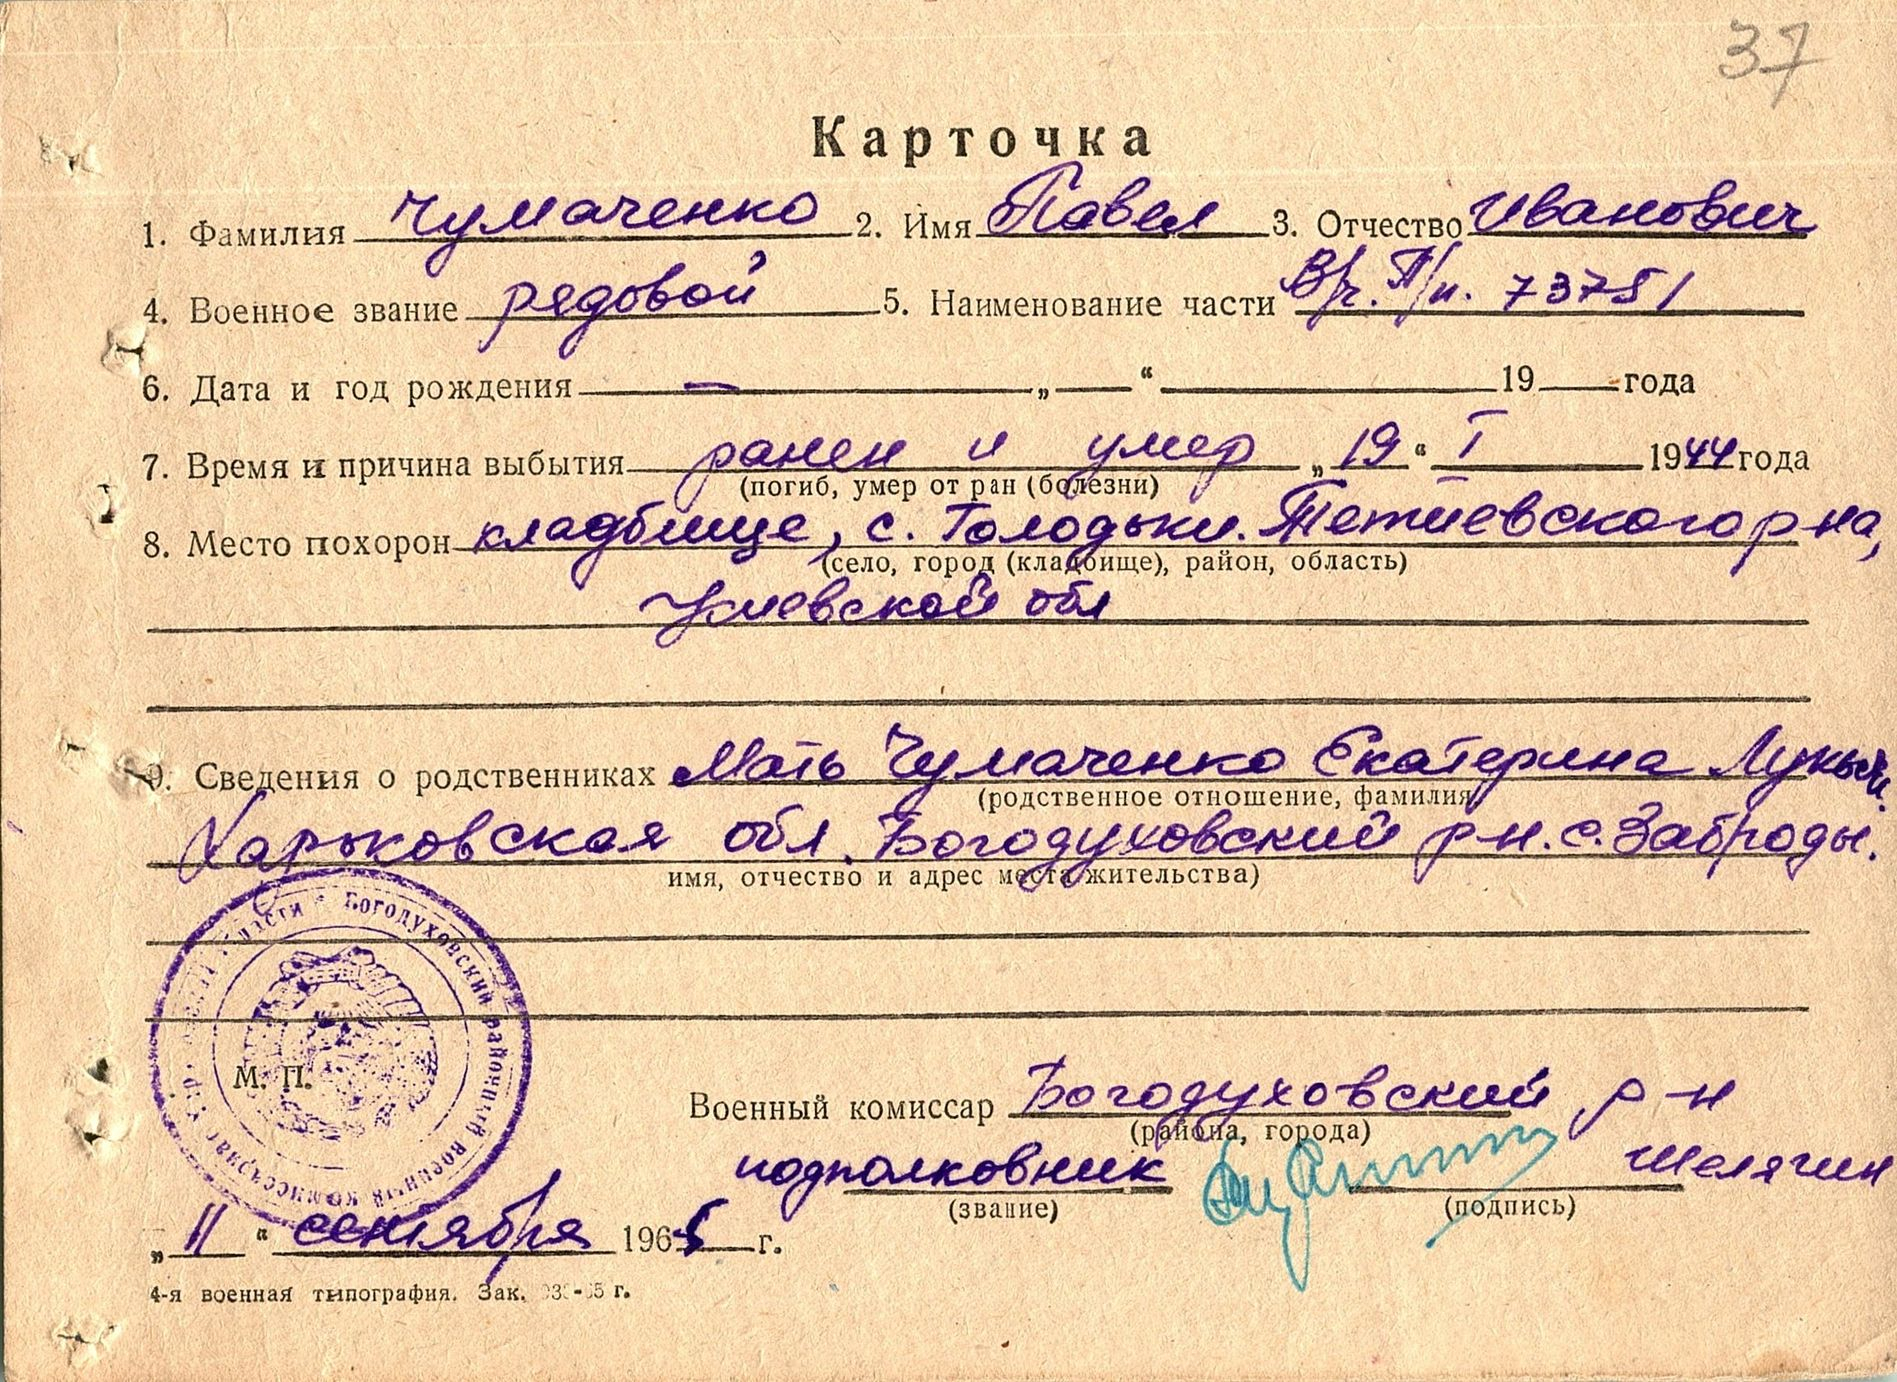 37
Карточка
1. Фамилия Чумаченко 2. Имя Павел 3. Отчество Иванович
4. Военное звание рядовой 5. Наименование части В/ч. П/п. 73751
6. Дата и год рождения — „ “ 19 года
7. Время и причина выбытия ранен и умер „19“ I 1944 года
(погиб, умер от ран (болезни)
8. Место похорон кладбище, с. Голодьки. Тетиевского р-на,
(село, город (кладбище), район, область)
Киевской обл
9. Сведения о родственниках Мать Чумаченко Екатерина
(родственное отношение, фамилия
Харьковская обл. Богодуховский р-н. с. Заброды.
имя, отчество и адрес места жительства)
Богодуховский районный военный комиссариат
М. П.
Военный комиссар Богодуховский р-н
(района, города)
подполковник Шелягин
(звание) (подпись)
„11“ сентября 1965 г.
4-я военная типография. Зак.